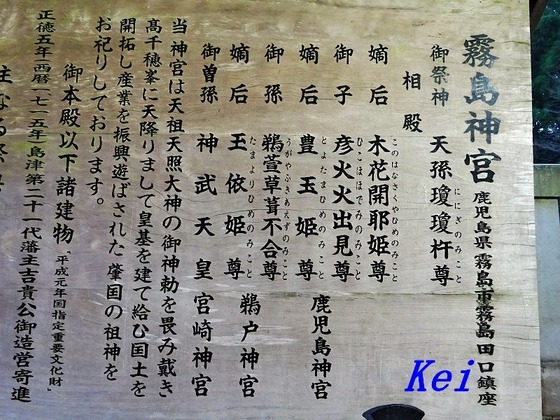 霧島神宮 鹿児島県霧島市霧島田口鎮座
御祭神 天孫瓊瓊杵尊
ににぎのみこと
相殿
嫡后 木花開耶姫尊
このはなさくやひめのみこと
御子 彦火火出見尊
ひこほほでみのみこと
嫡后 豊玉姫尊 鹿児島神宮
とよたまひめのみこと
御孫 鵜萱草葺不合尊
うがやふきあえずのみこと
嫡后 玉依姫尊 鵜戸神宮
たまよりひめのみこと
御曽孫 神武天皇 宮崎神宮
当神宮は天祖天照大神の御神勅を畏み戴き
高千穂峯に天降りまして皇基を建て給ひ国土を
開拓し産業を振興遊ばされた肇国の祖神を
お祀りしております。
御本殿以下諸建物「平成元年国指定重要文化財」
正徳五年(西暦一七一五年)島津第二十一代藩主吉貴公御造営寄進
主なる祭
Kei